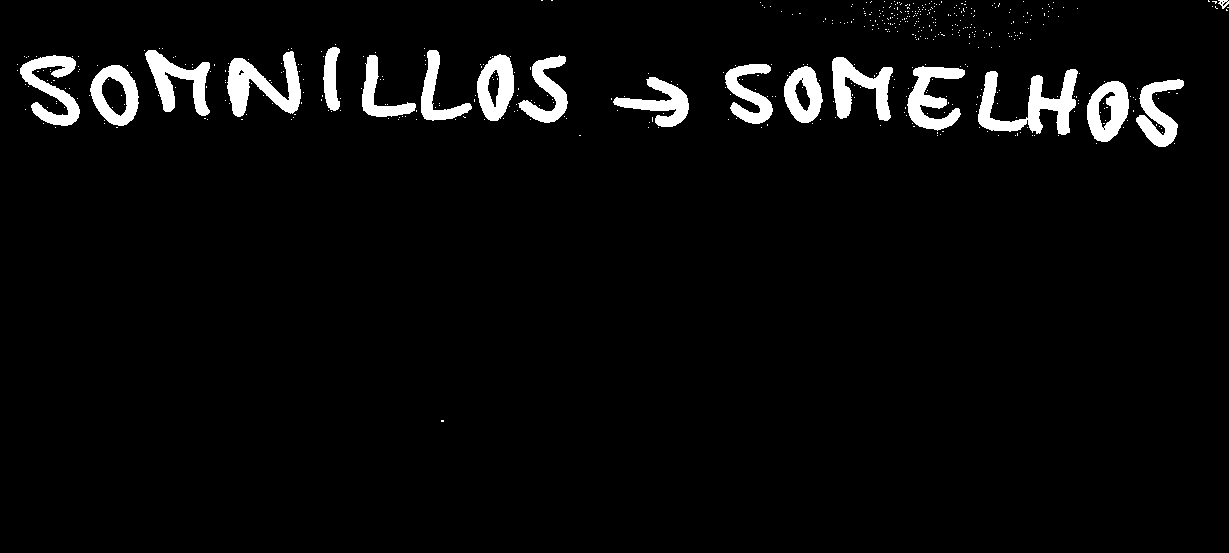 SOMNILLOS → SOMELHOS